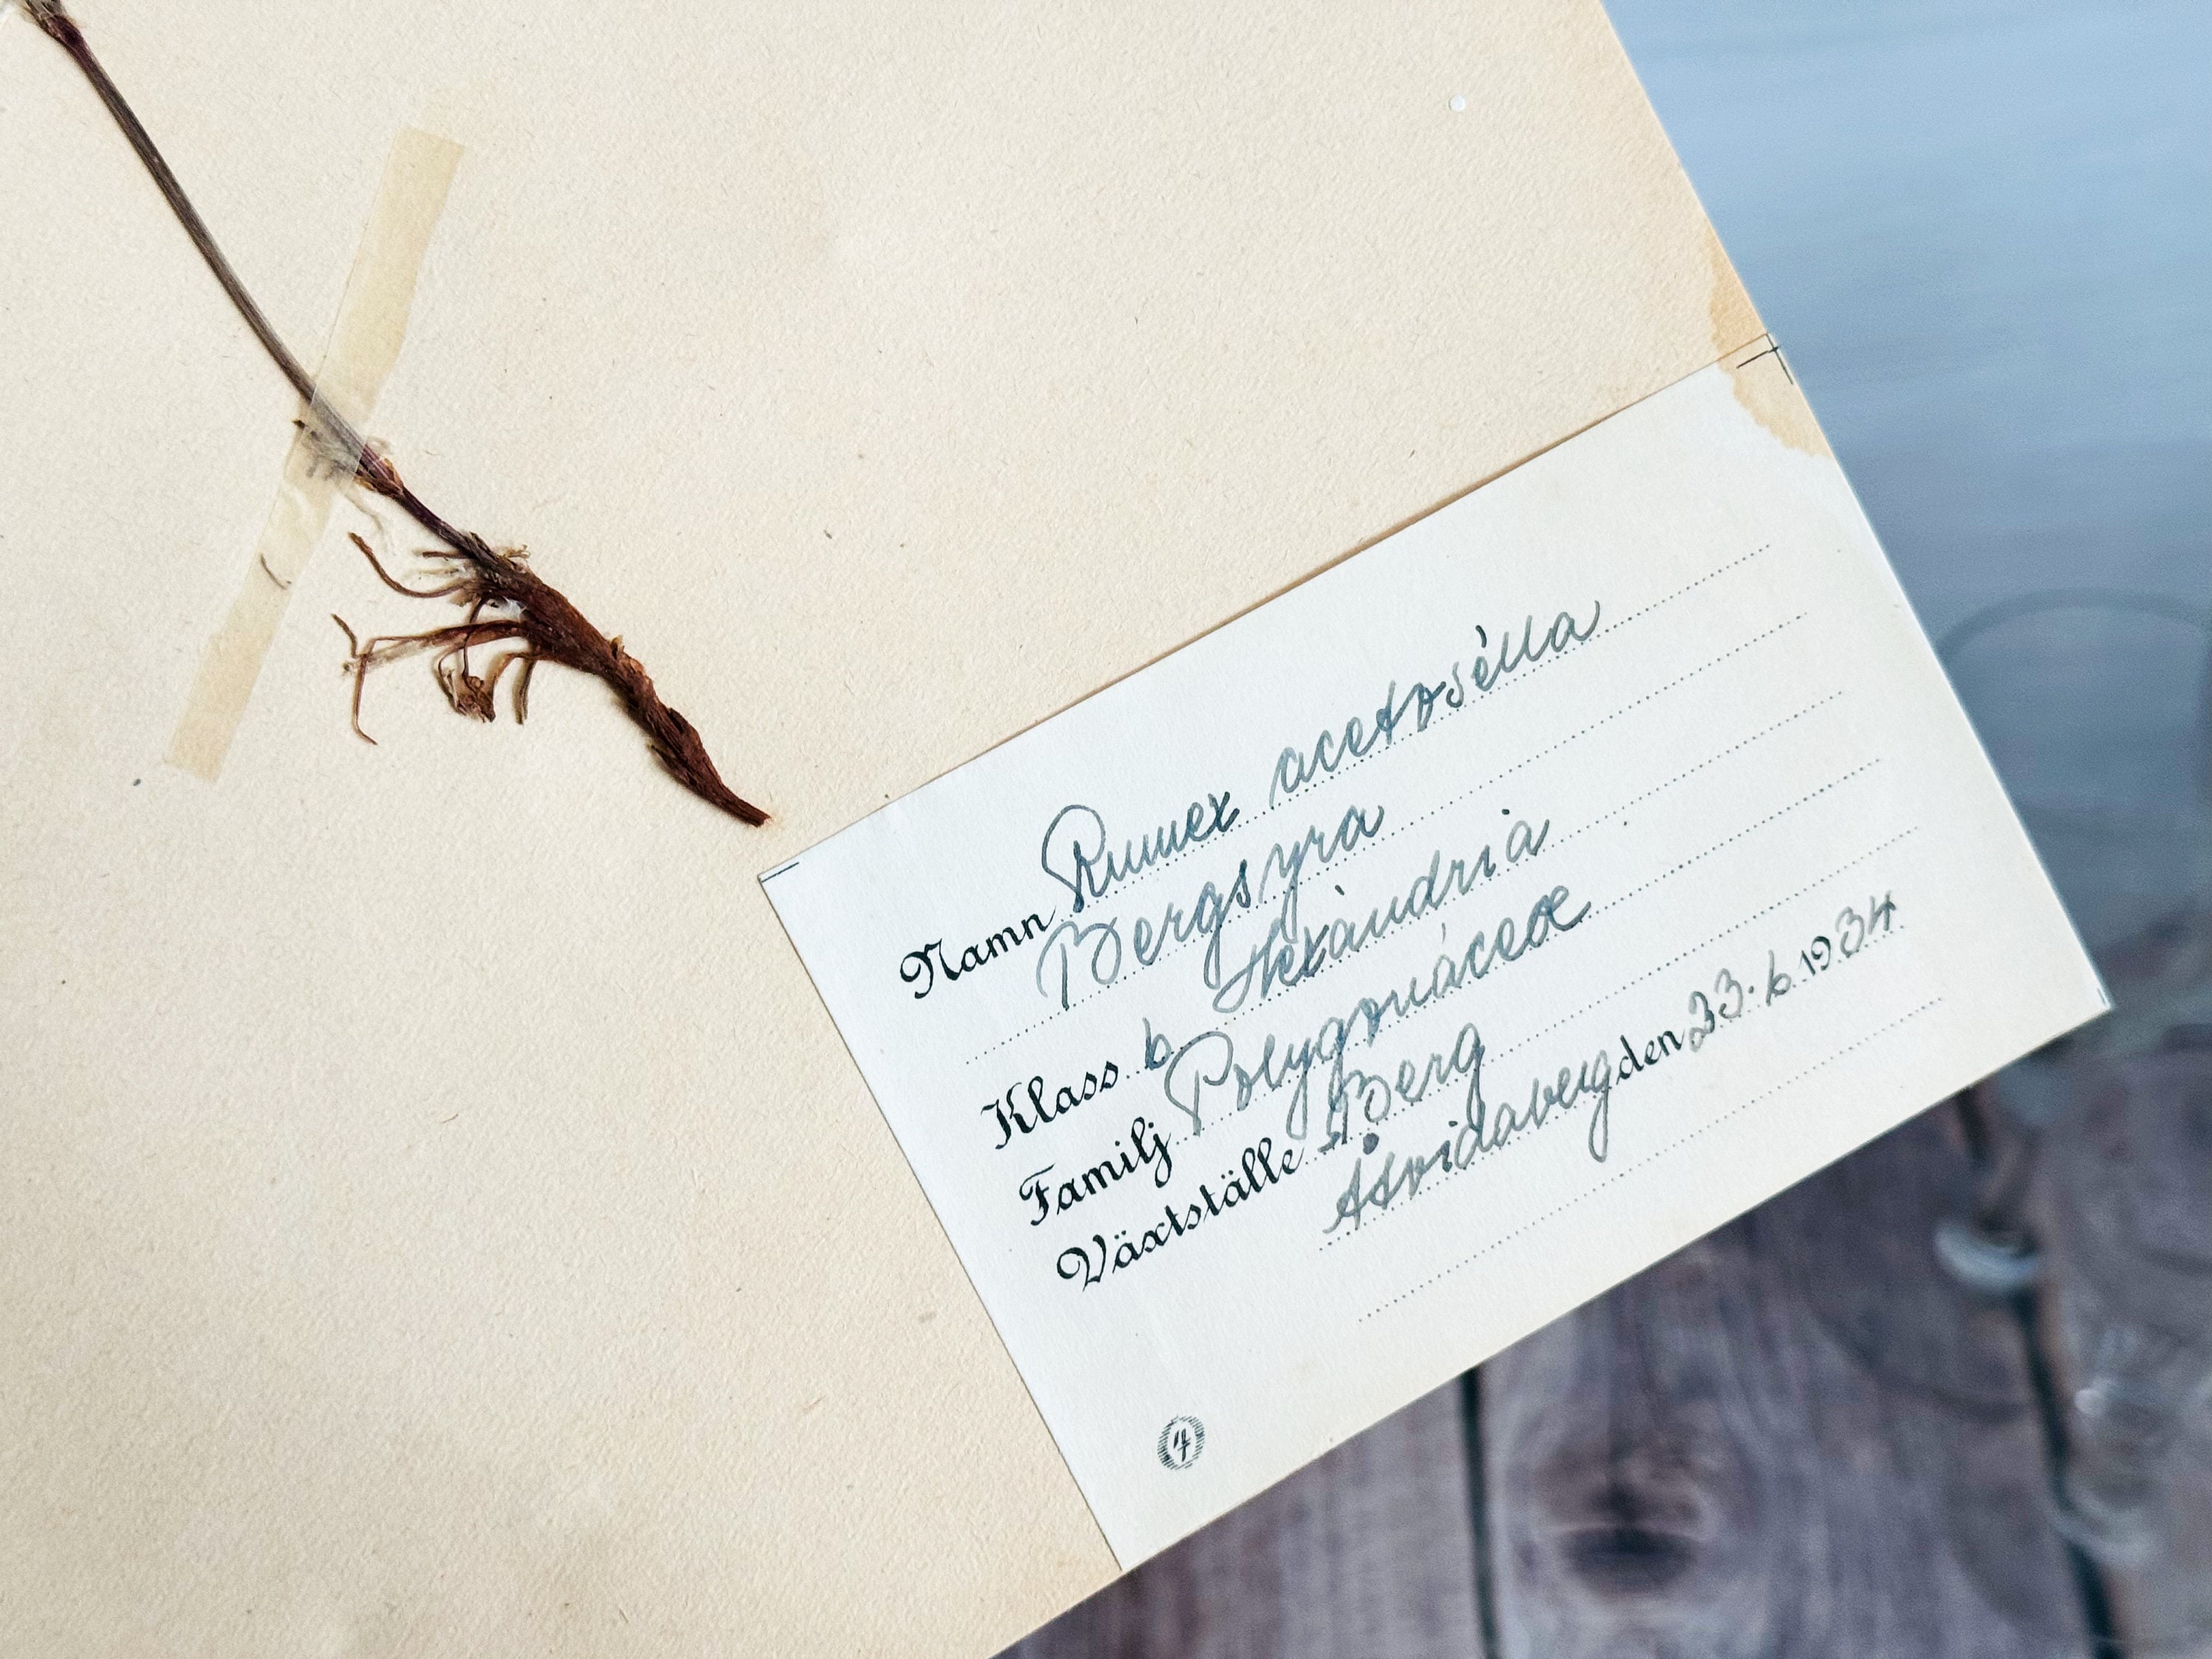 Namn Rumex acetosélla
Bergsyra
Klass 6. Hexándria
Familj Polygonáceæ
Växtställe Berg
Åtvidaberg den 23.6. 1934
4